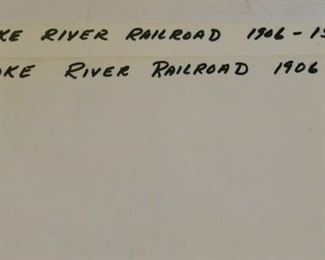 RIVER RAILROAD 1906 -
RIVER RAILROAD 1906